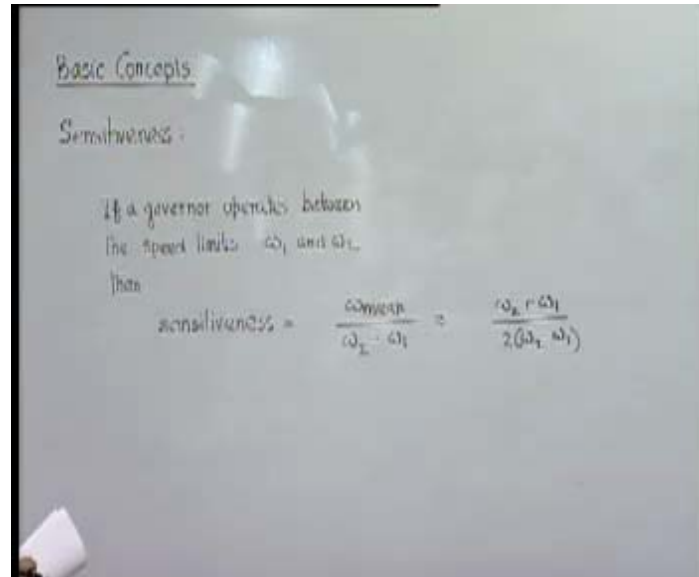 Basic Concepts
Sensitiveness :
If a governor operates between
the speed limits ω₁ and ω₂
then
sensitiveness = ωmean / (ω₂ - ω₁) = (ω₂ + ω₁) / 2(ω₂ - ω₁)